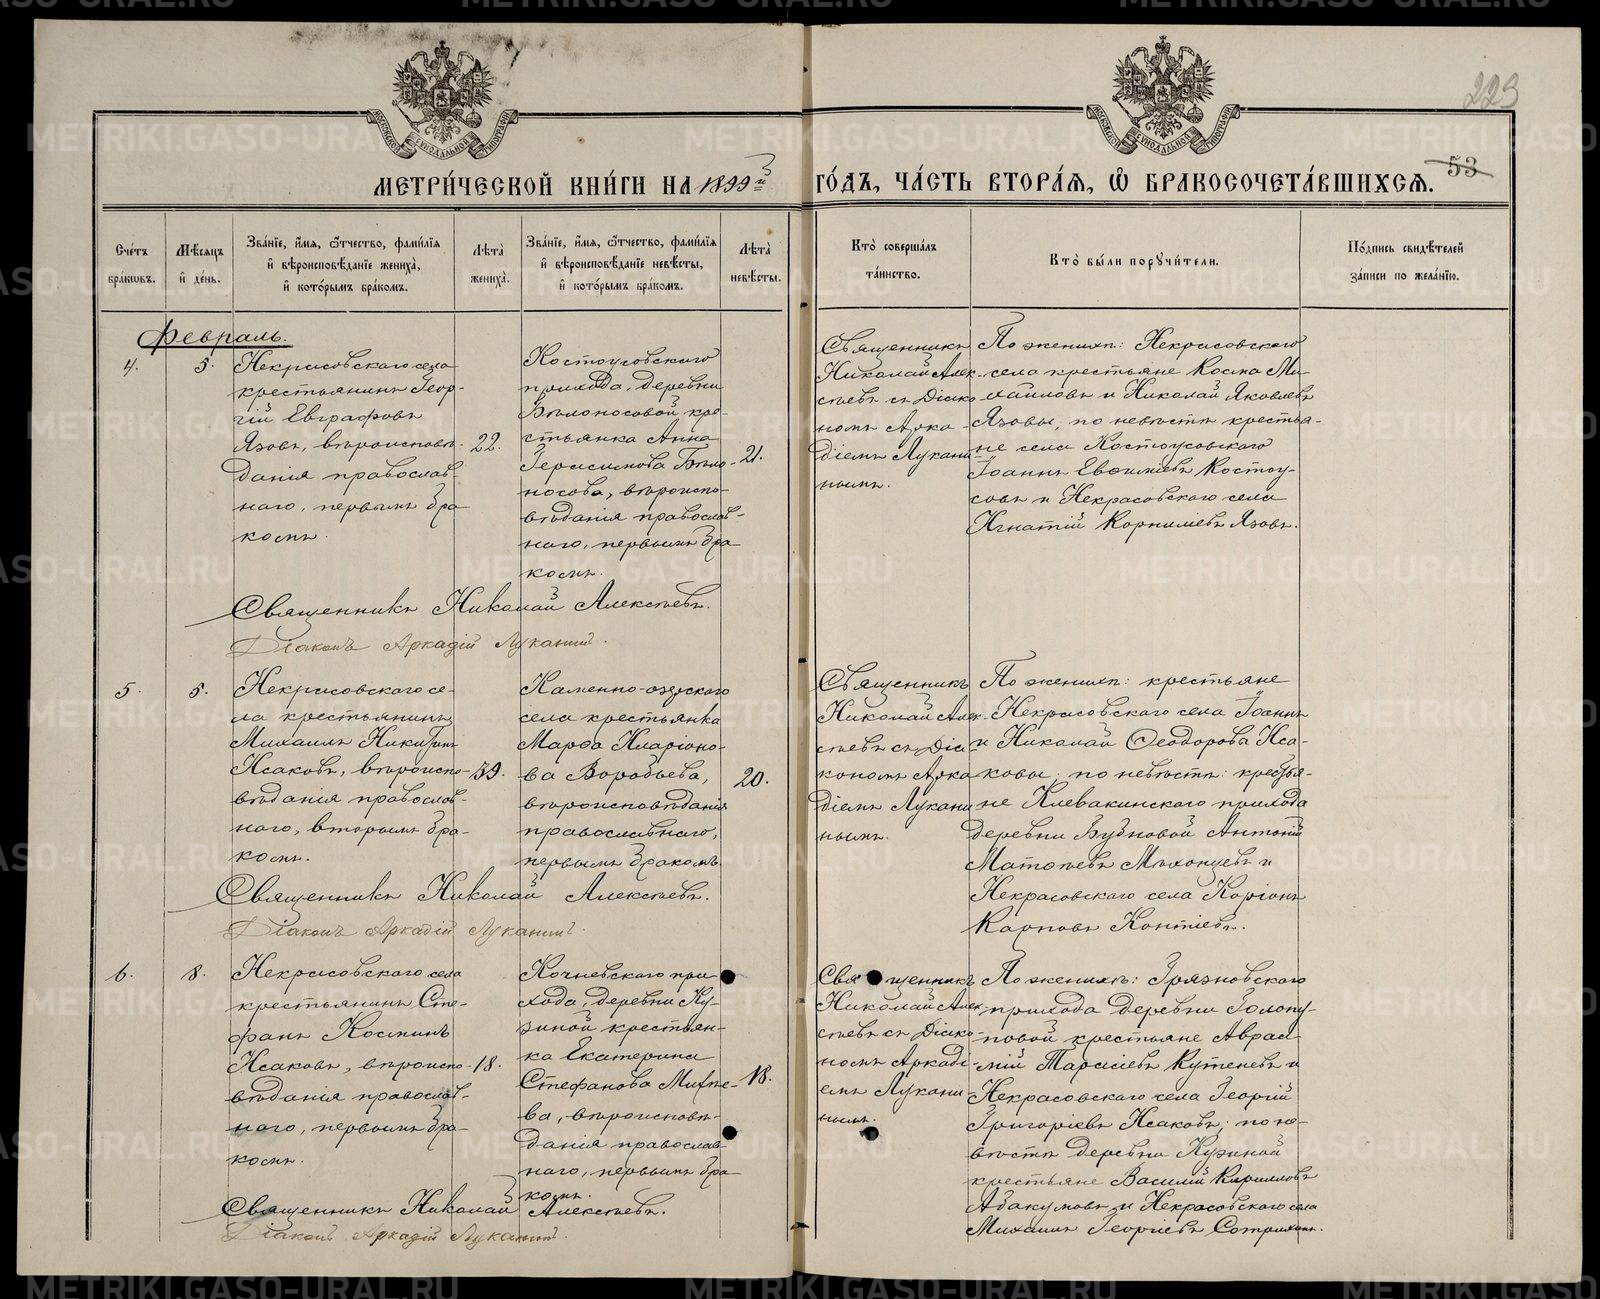 223
53
МЕТРИ́ЧЕСКОЙ КНИ́ГИ НА 1899й ГО́ДЪ, ЧА́СТЬ ВТОРА́Ѧ, Ѡ҆ БРАКОСОЧЕТА́ВШИХСѦ.
Сче́тъ бра́кѡвъ.
Мѣ́сѧцъ и҆ де́нь.
Зва́нїе, и҆́мѧ, ѻ҆́тчество, фамі́лїѧ
и҆ вѣроисповѣ́данїе жениха̀,
и҆ кото́рымъ бра́комъ.
Лѣ́та̀ жениха̀.
Зва́нїе, и҆́мѧ, ѻ҆́тчество, фамі́лїѧ
и҆ вѣроисповѣ́данїе невѣ́сты,
и҆ кото́рымъ бра́комъ.
Лѣ́та̀ невѣ́сты.
Кто̀ соверша́лъ
та́инство.
Кто̀ бы́ли порꙋчи́тели.
По́дпись свидѣ́телей
за́писи по жела́нїю.
Февраль.
4.
5.
Некрасовскаго села
крестьянинъ Геор-
гій Евграфовъ
Язовъ, вѣроисповѣ-
данія православ-
наго, первымъ бра-
комъ.
22.
Костоусовскаго
прихода, деревни
Бѣлоносовой кре-
стьянка Анна
Герасимова Бѣло-
носова, вѣроиспо-
вѣданія православ-
наго, первымъ бра-
комъ.
21.
Священникъ
Николай Алек-
сѣевъ съ Діако-
номъ Арка-
діемъ Лукани-
нымъ.
По женихѣ: Некрасовскаго
села крестьяне Косма Ми-
хайловъ и Николай Яковлевъ
Язовы, по невѣстѣ крестья-
не села Костоусовскаго
Іоаннъ Евѳиміевъ Костоу-
совъ и Некрасовскаго села
Игнатій Корниліевъ Язовъ.
Священникъ Николай Алексѣевъ.
Діаконъ Аркадій Луканинъ.
5.
5.
Некрасовскаго се-
ла крестьянинъ
Михаилъ Никитинъ
Исаковъ, вѣроиспо-
вѣданія православ-
наго, вторымъ бра-
комъ.
Каменно-озерскаго
села крестьянка
Марѳа Иларіоно-
ва Воробьева,
вѣроисповѣданія
православнаго,
первымъ бракомъ.
20.
Священникъ
Николай Алек-
сѣевъ съ Діа-
кономъ Арка-
діемъ Лукани-
нымъ.
По женихѣ: крестьяне
Некрасовскаго села Іоаннъ
и Николай Ѳеодоровы Иса-
ковы, по невѣстѣ: крестья-
не Клевакинскаго прихода
деревни Бубновой Антоній
Матѳѣевъ
Некрасовскаго села
Карповъ
Священникъ Николай Алексѣевъ.
Діаконъ Аркадій Луканинъ.
6.
8.
Некрасовскаго села
крестьянинъ Сте-
фанъ Косминъ
Исаковъ, вѣроиспо-
вѣданія православ-
наго, первымъ бра-
комъ.
18.
Кочневскаго при-
хода, деревни Ку-
зиной крестьян-
ка Екатерина
Стефанова Михѣе-
ва, вѣроисповѣ-
данія православ-
наго, первымъ бра-
комъ.
18.
Священникъ
Николай Алек-
сѣевъ съ Діако-
номъ Аркаді-
емъ Лукани-
нымъ.
По женихѣ: Грязновскаго
прихода деревни Голопу-
повой крестьяне Авраа-
мій Тарасіевъ Кутеневъ и
Некрасовскаго села Георгій
Григоріевъ Исаковъ; по не-
вѣстѣ деревни Кузиной
крестьяне Василій Кирилловъ
Абакумовъ и Некрасовскаго села
Михаилъ Георгіевъ
Священникъ Николай Алексѣевъ.
Діаконъ Аркадій Луканинъ.
METRIKI.GASO-URAL.RU